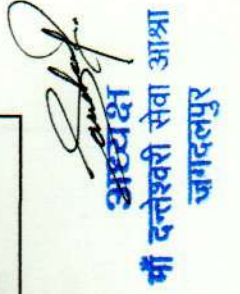 अध्यक्ष
माँ दन्तेश्वरी सेवा आश्रा
जगदलपुर